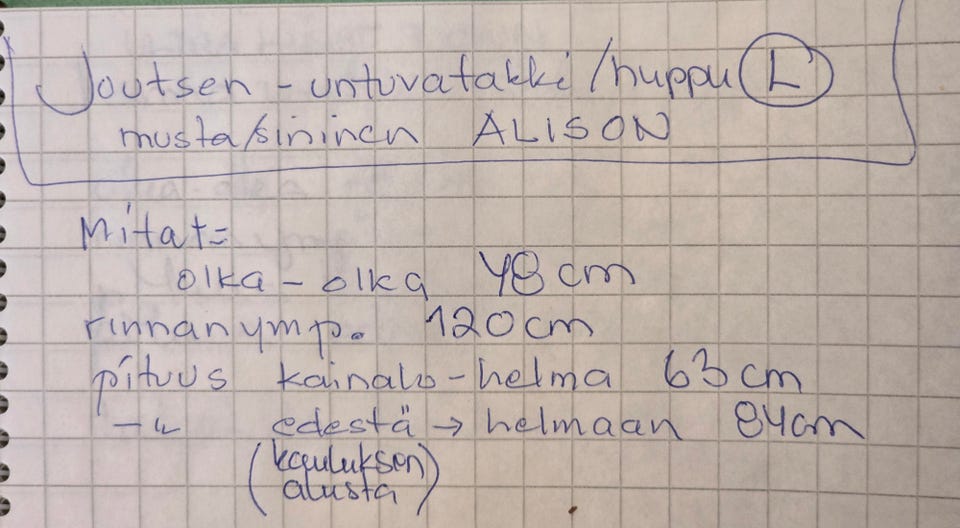 Joutsen - untuvatakki/huppu L
musta/sininen ALISON
Mitat=
olka - olka 48 cm
rinnanymp. 120cm
pituus kainalo-helma 63 cm
-"- edestä → helmaan 84cm
(kauluksen
alusta)